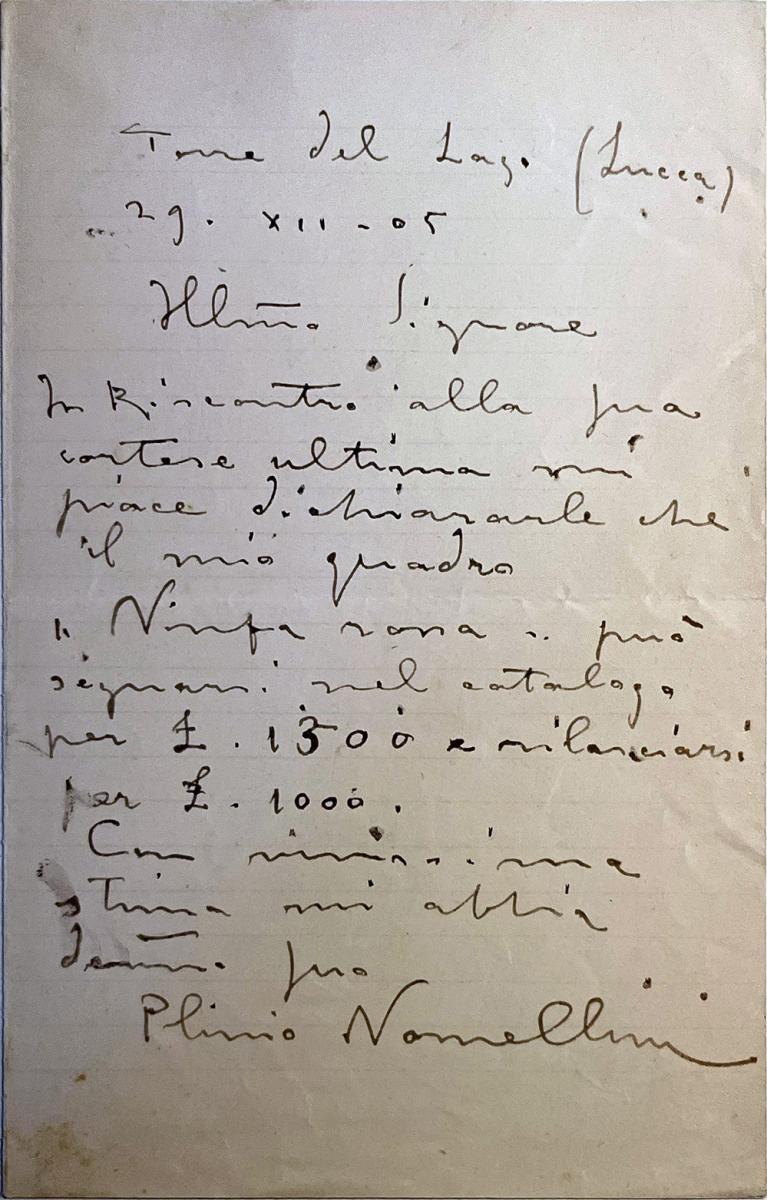 Torre del Lago (Lucca)
29. XII - 05
Illmo. Signore
In Riscontro alla sua
cortese ultima mi
piace dichiararle che
il mio quadro
" Ninfa rossa " può
segnarsi nel catalogo
per £. 1500 e rilasciarsi
per £. 1000.
Con vivissima
stima mi abbia
devmo. suo
Plinio Nomellini